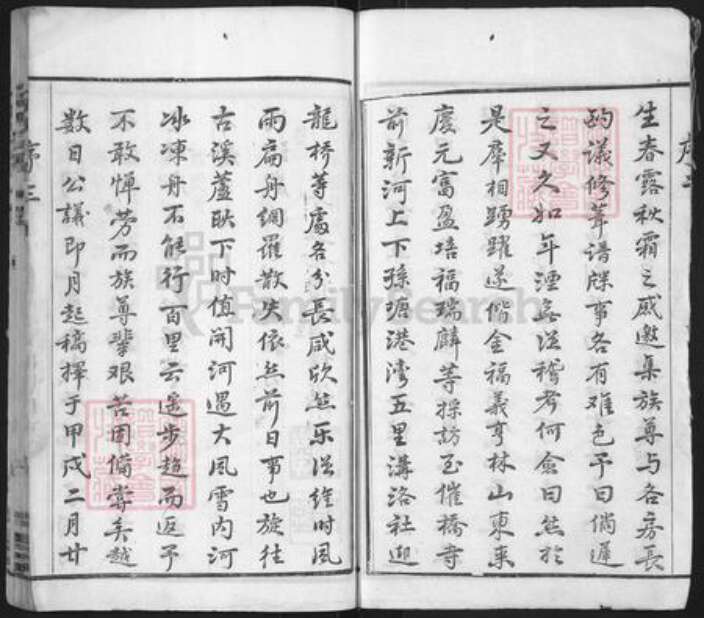 生春露秋霜之感邀集族尊与各房長
酌議修葺谱牒事各有难色予曰倘遲
之又久如年湮無從稽考何僉曰然於
是羣相踴躍遂偕金福義亨林山東来
慶元富盈培福瑞麟等採訪至催橋寺
前新河上下孫塘港湾五里溝洛社迎
龍橋等處各分長咸欣然乐從維时風
雨扁舟網羅散失依然前日事也旋往
古溪蘆 下时值開河遇大風雪内河
冰凍舟不能行百里云遥步趋而返予
不敢惮劳而族尊輩艰苦固備嘗矣越
数日公議即月起稿择于甲戌二月廿
序三
FamilySearch